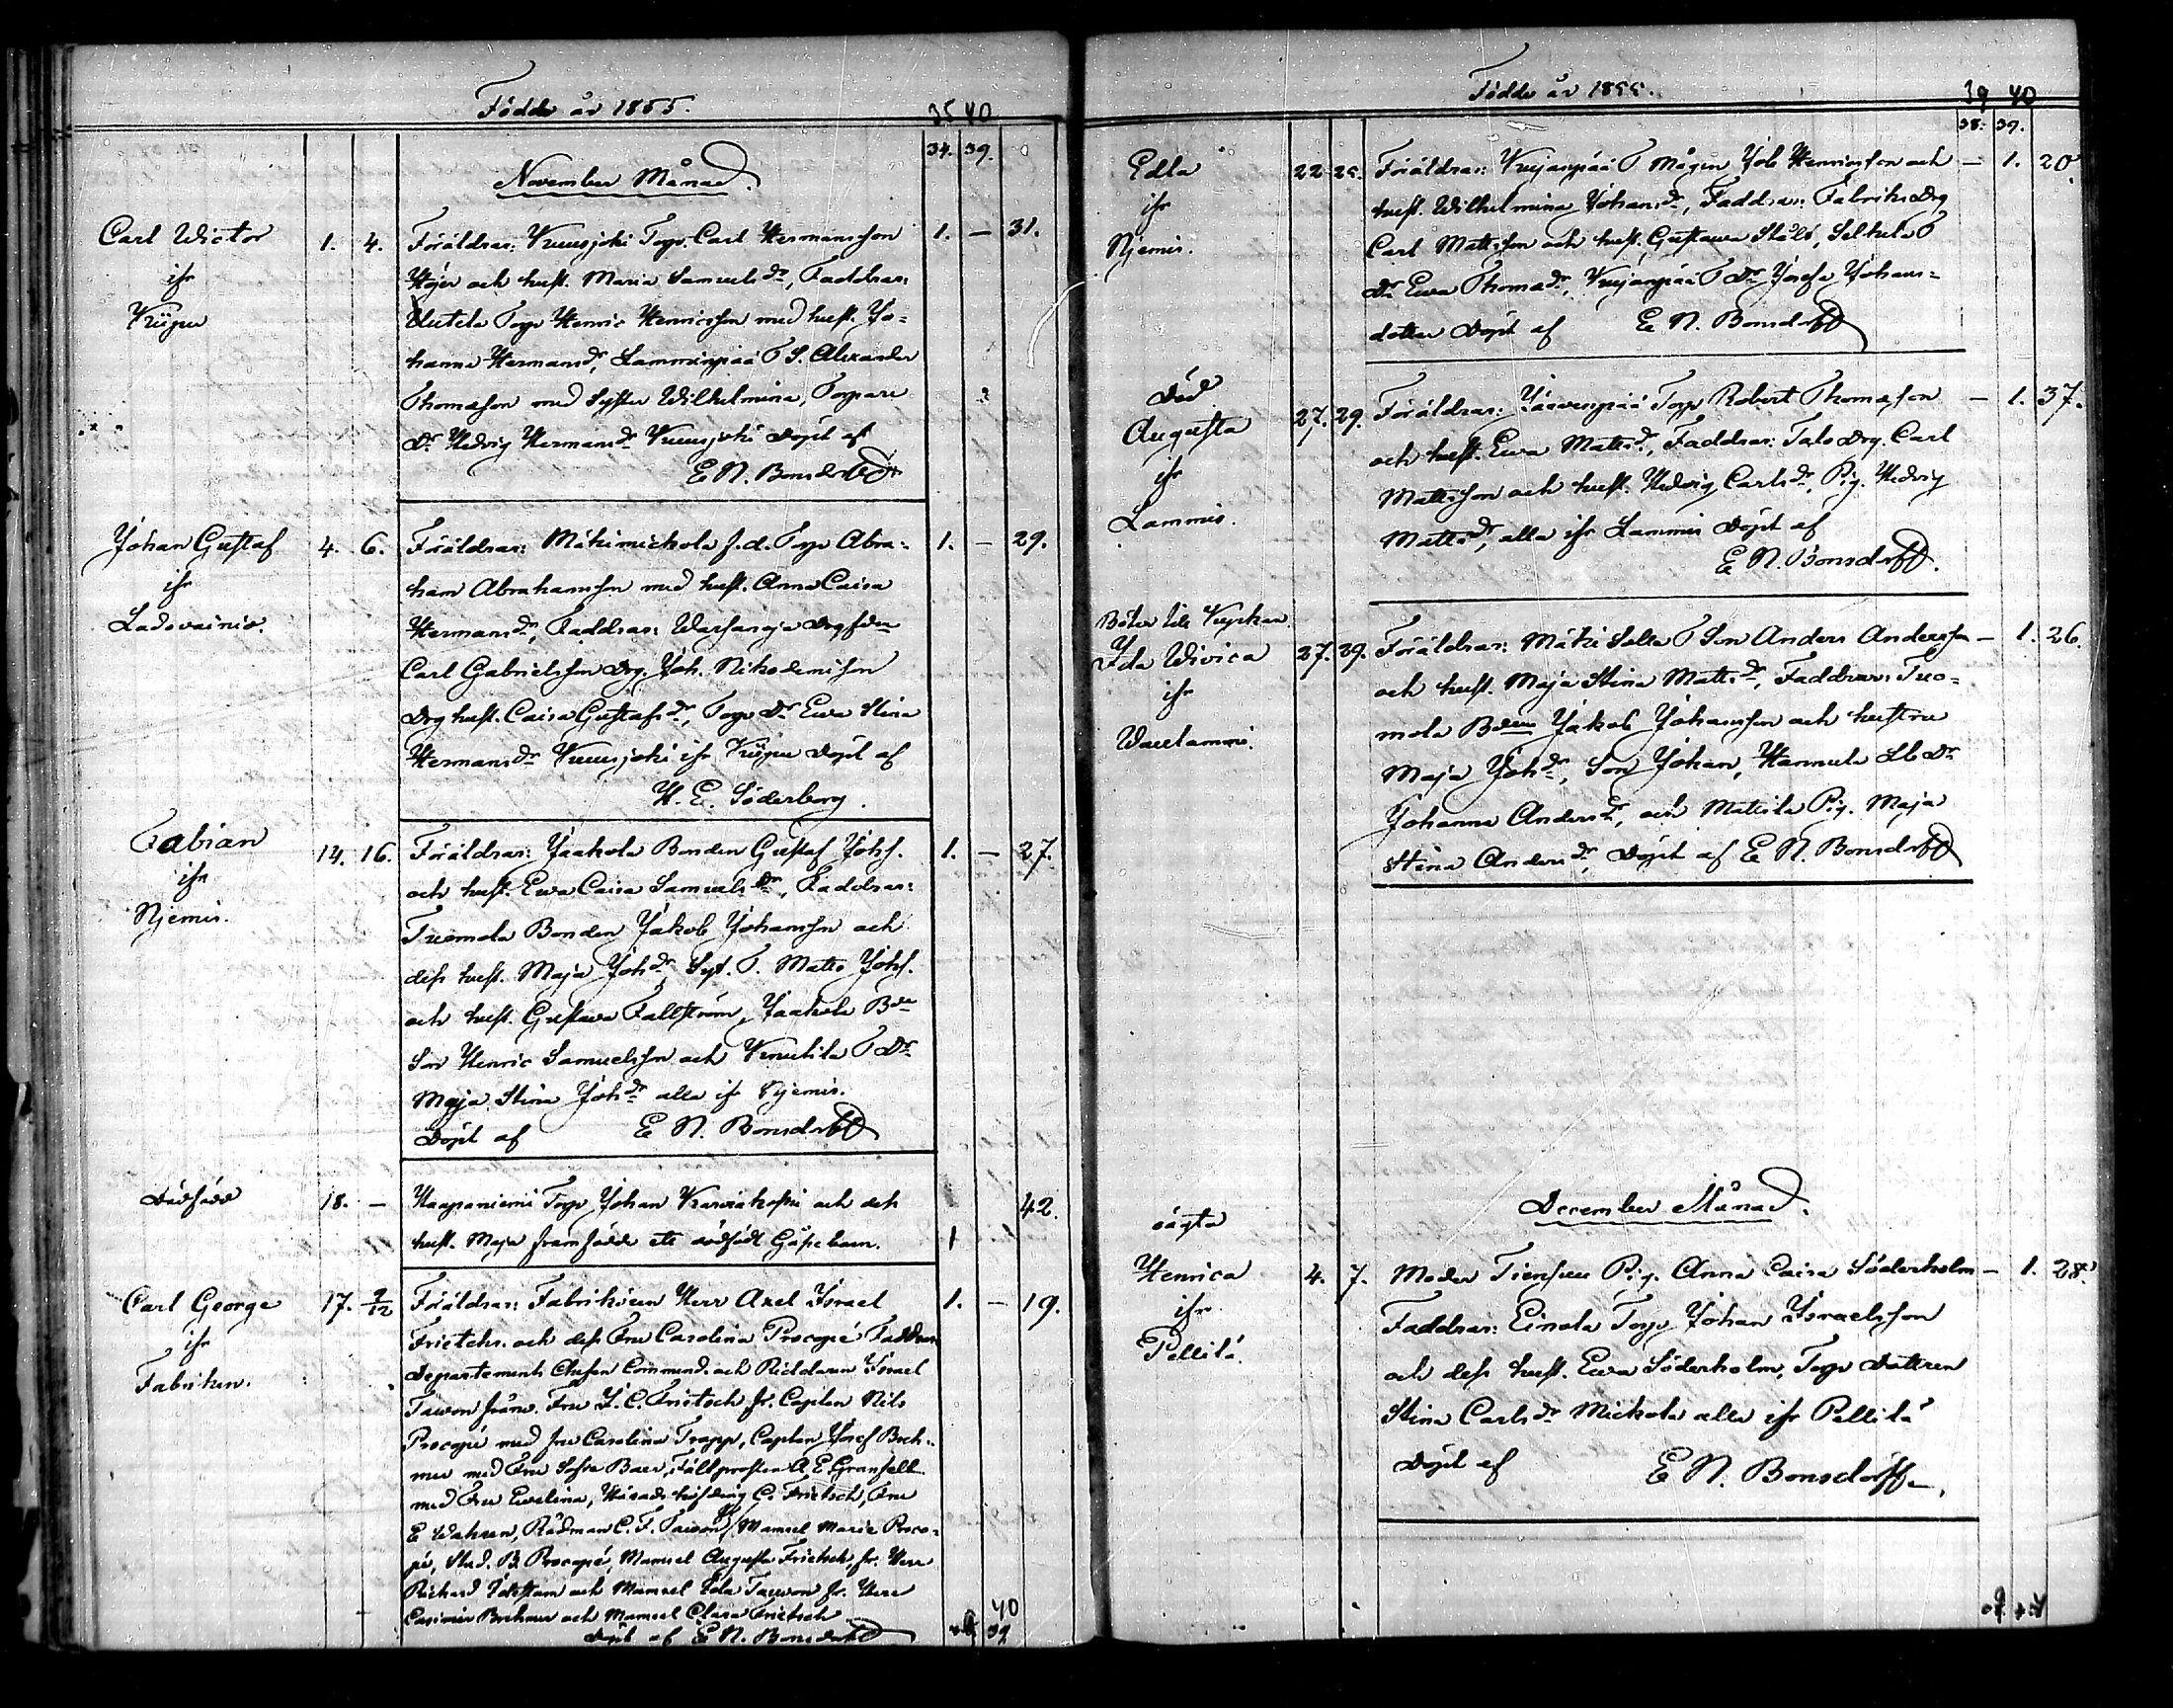 Födde år 1855.
35 40
34. 39.
November Månad.
Carl Wictor
ifr
Kujpu
1. 4.
Föräldrar: Kuusjoki Torp. Carl Hermansson
Höjer och hust. Maria Samuelsdr, Faddrar:
Torp Henric Henricsson med hust. Jo-
hanna Hermansdr, Lamminpää T S. Alexander
Thomasson med Syster Wilhelmina, Torpare
Dr Hedvig Hermansdr Kuusjoki Döpt af
E N. Bonsdorff
1. — 31.
Johan Gustaf
ifr
Ladovainio.
4. 6.
Föräldrar: Mäkimickola f.d. Torp Abra-
ham Abrahamsson med hust. Anna Caisa
Hermansdr, Faddrar:
Carl Gabrielsson Drg. Joh. Nikodemisson
Drg hust. Caisa Gustafsdr, Torp Dr Ewa Stina
Hermansdr Kuusjoki ifr Kujpu Döpt af
H. E. Söderborg.
1. — 29.
Fabian
ifr
Njemis.
14. 16.
Föräldrar: Jaakola Bonden Gustaf Johs.
och hust. Ewa Caisa Samuelsdr, Faddrar:
Tuomola Bonden Jakob Johansson och
dess hust. Maja Johdr, Syt. T. Matts Johs.
och hust. Gustava Fallström, Jaakola Bde
Son Henric Samuelsson och Knutila T Dr
Maja Stina Johdr alla ifr Njemis.
Döpt af E N. Bonsdorff
1. — 27.
Dödfödd
18. —
Haapaniemi Torp Johan Karväkoski och dess
hust. Maja framfödde ett dödfödt Gåssebarn.
1 42.
Carl George
ifr
Fabriken.
17. 2/12
Föräldrar: Fabrikören Herr Axel Israel
Frietsch och dess Fru Carolina Procopé Faddrar
Departements Chefen Commend. och Riddaren Israel
Tawon Fru J. C. Frietsch, hr. Capiten Nils
Procopé med fru Carolina Trapp, Capten Josef Breh-
mer med Fru Sofia Baer, Fältprosten A. E. Granfelt
med Fru Ewelina, Häradshöfding C. Frietsch, Fru
E Wahren, Rådman C. F. Tawon, Mamsel Maria Proco-
pé, Stud. B. Procopé, Mamsel Augusta Frietsch, hr. Herr
Richard Idestam och Mamsel Ida Tawon hr. Herr
Casimir Brehmer och Mamsel Clara Frietsch
Döpt af E N. Bonsdorff
1. — 19.
40
39
Födde år 1855.
39 40
38. 39.
Edla
ifr
Njemis.
22 25.
Föräldrar: Kujanpää T Mågen Job Henricsson och
hust. Wilhelmina Johansdr, Faddrar: Fabriks Drg
Carl Mattsson och hust. Gustava Stålt, T
Dr Ewa Thomadr, Kujanpää T Dr Josefa Johans-
dotter Döpt af E N. Bonsdorff
— 1. 20.
Död
Augusta
ifr
Lammis.
27. 29.
Föräldrar: Järvenpää Torp Robert Thomasson
och hust. Ewa Mattsdr, Faddrar: Talo Drg. Carl
Mattsson och hust. Hedvig Carlsdr, Pig. Hedvig
Mattsdr, alla ifr Lammis Döpt af
E N. Bonsdorff.
— 1. 37.
Böter till Kyrkan.
Ida Wivica
ifr
Waulammi.
27. 29.
Föräldrar: Mäki T Son Anders Andersson
och hust. Maja Stina Mattsdr, Faddrar: Tuo-
mola Bden Jakob Johansson och hustru
Maja Johdr, Son Johan, Hannula Lb Dr
Johanna Andersdr, och Mattila Pig. Maja
Stina Andersdr, Döpt af E N. Bonsdorff
— 1. 26.
December Månad.
oägta
Henrica
ifr
Pellilä.
4. 7.
Moder Tiensuu Pig. Anna Caisa Söderholm
Faddrar: Einola Torp Johan Israelsson
och dess hust. Ewa Söderholm, Torp Dottren
Stina Carlsdr Mickola alla ifr Pellilä
Döpt af E N. Bonsdorff.
— 1. 28.